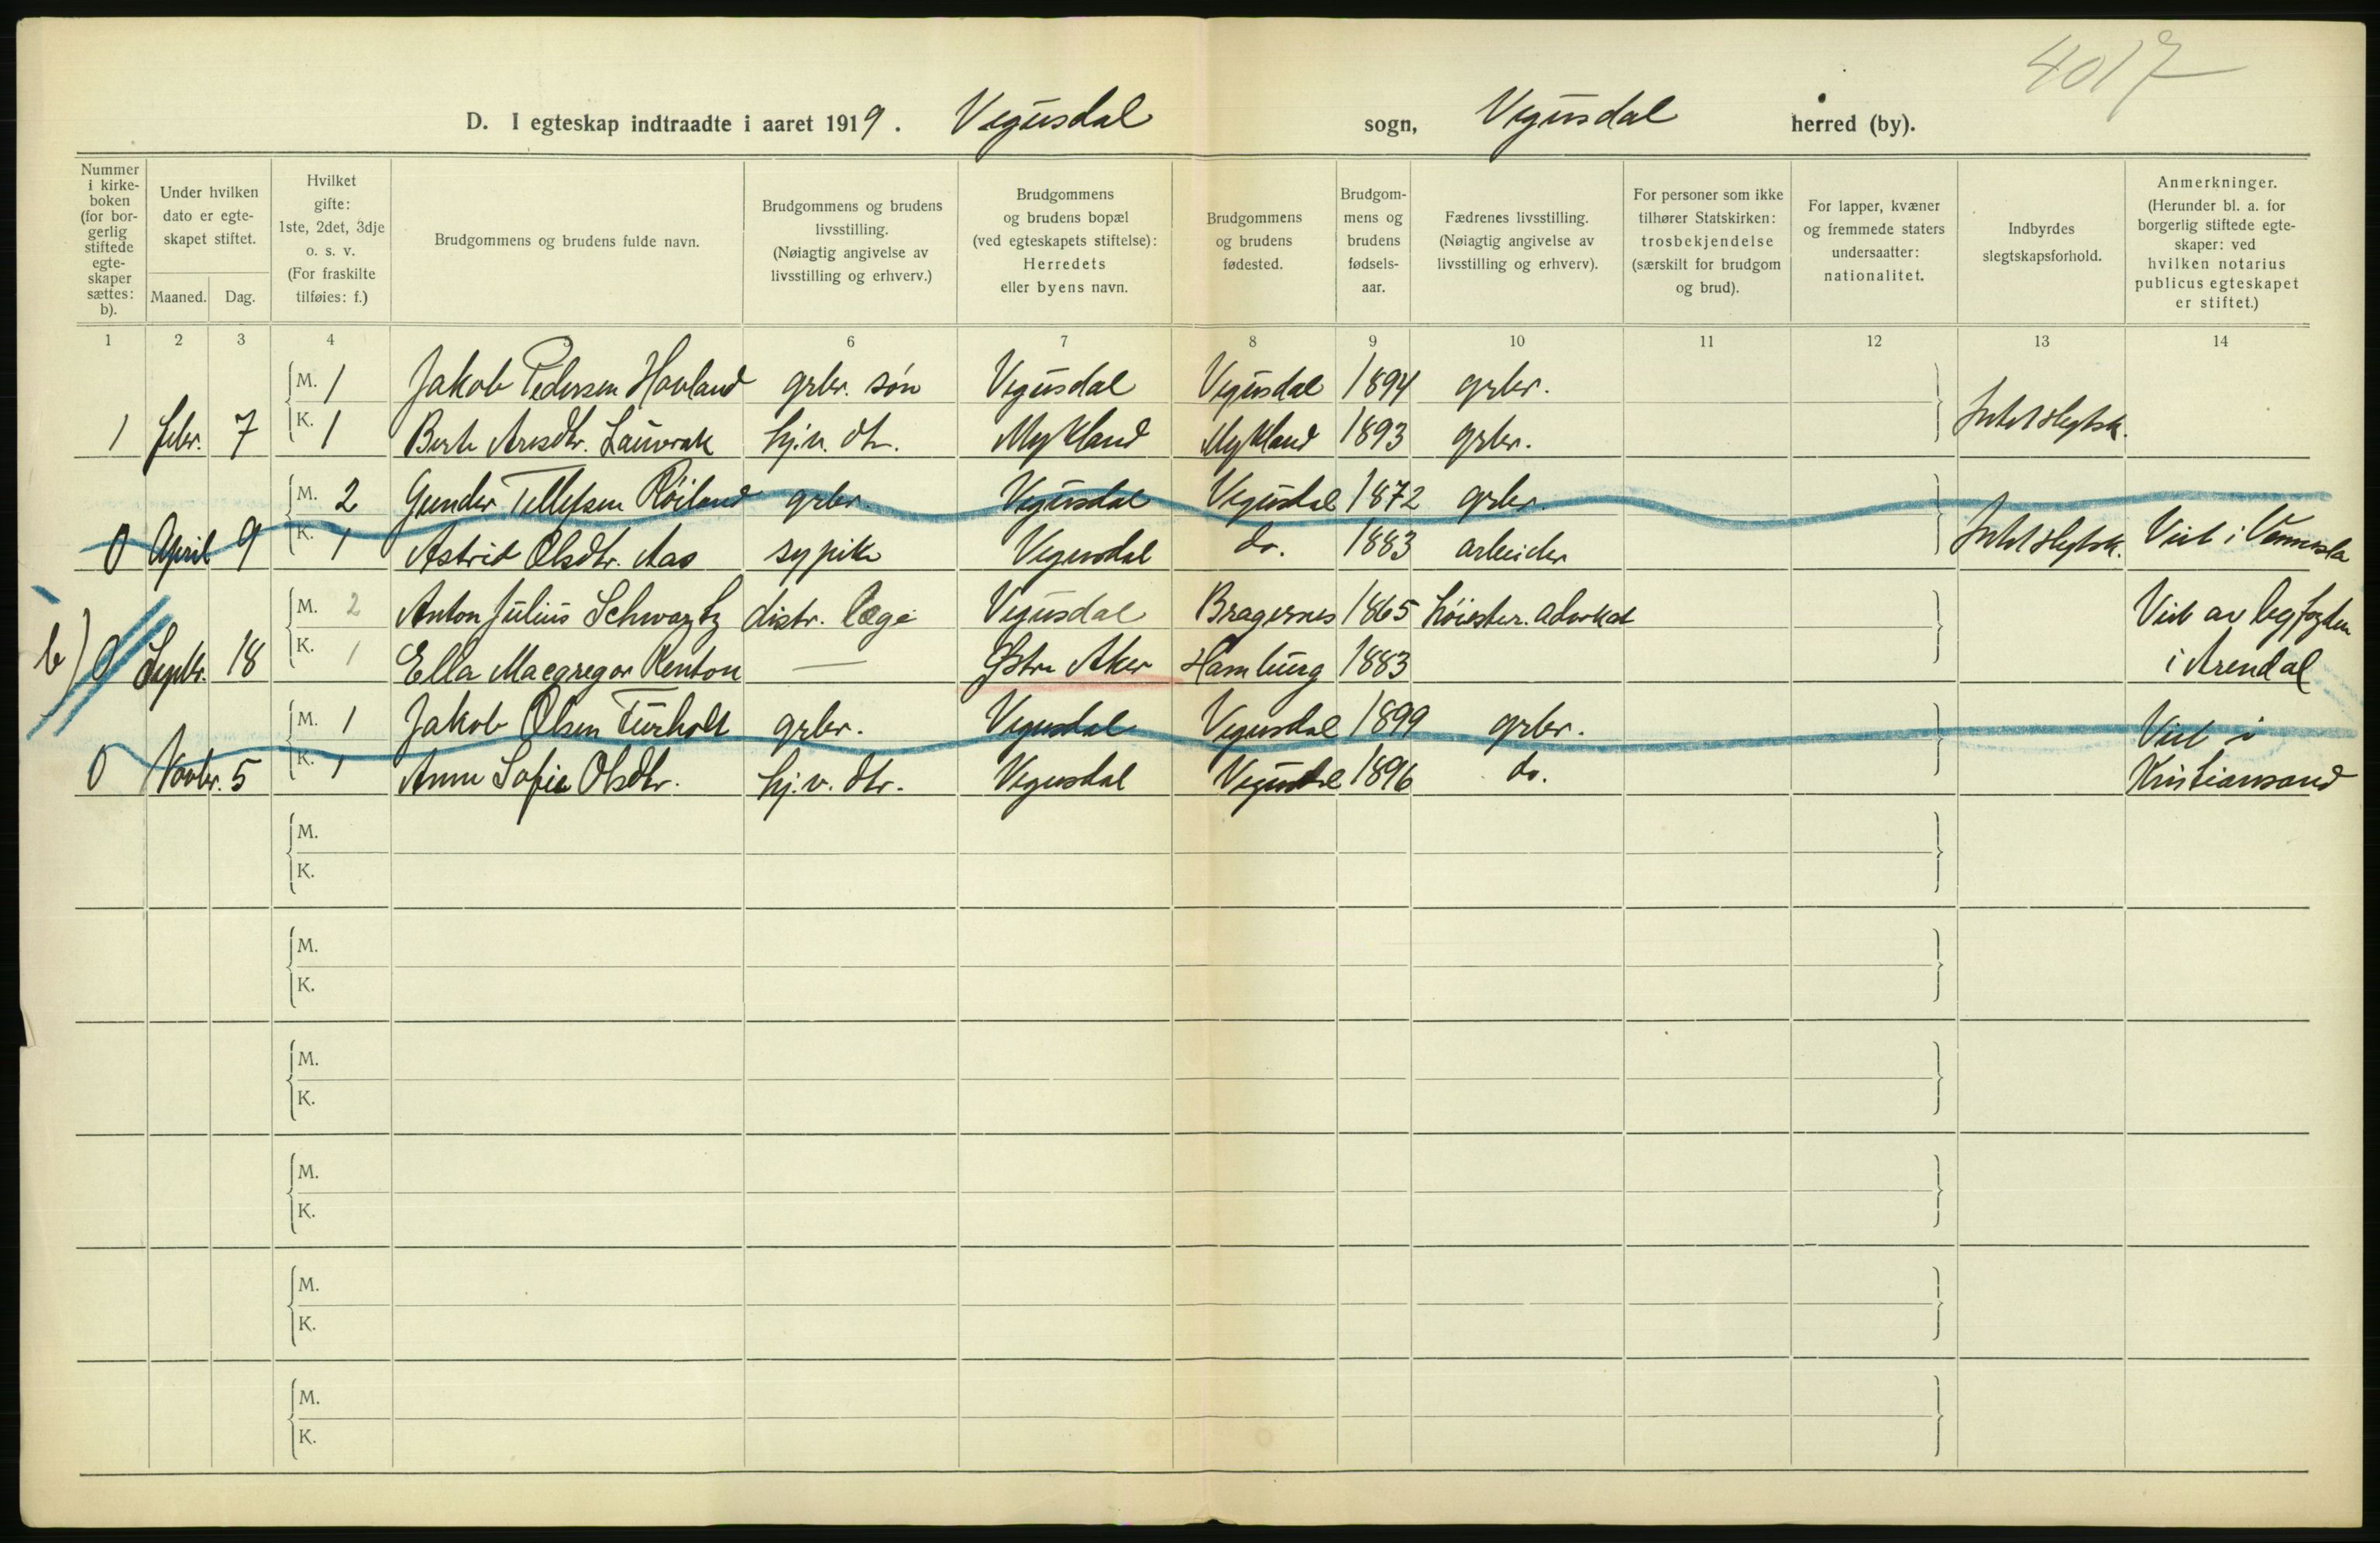 4017
D. I egteskap indtraadte i aaret 1919. Vegusdal sogn, Vegusdal herred (by).
Nummer i kirke-boken (for bor-gerlig stiftede egte-skaper sættes: b).
Under hvilken dato er egte-skapet stiftet.
Maaned. Dag.
Hvilket gifte: 1ste, 2det, 3dje o. s. v. (For fraskilte tilføies: f.)
Brudgommens og brudens fulde navn.
Brudgommens og brudens livsstilling. (Nøiagtig angivelse av livsstilling og erhverv.)
Brudgommens og brudens bopæl (ved egteskapets stiftelse): Herredets eller byens navn.
Brudgommens og brudens fødested.
Brudgom-mens og brudens fødsels-aar.
Fædrenes livsstilling. (Nøiagtig angivelse av livsstilling og erhverv).
For personer som ikke tilhører Statskirken: trosbekjendelse (særskilt for brudgom og brud).
For lapper, kvæner og fremmede staters undersaatter: nationalitet.
Indbyrdes slegtskapsforhold.
Anmerkninger. (Herunder bl. a. for borgerlig stiftede egte-skaper: ved hvilken notarius publicus egteskapet er stiftet.)
1 2 3 4 5 6 7 8 9 10 11 12 13 14
M. 1 Jakob Pedersen Hovland grbr. søn Vegusdal Vegusdal 1894 grbr.
1 Febr. 7 K. 1 Berte Aresdtr. Lauvrak hj.v. dtr. Mykland Mykland 1893 grbr. Intet slegtsk.
M. 2 Gunder Tellefsen Røiland grbr. Vegusdal Vegusdal 1872 grbr.
0 April 9 K. 1 Astrid Olsdtr. Aas sypike Vegusdal do. 1883 arbeider Intet slegtsk. Viet i Vennesla
M. 2 Anton Julius Schwartz distr. læge Vegusdal Bragernes 1865 høiester. advokat Viet av byfogden
b) 0 Septbr. 18 K. 1 Ella Macgregor Kenton — Østre Aker Hamburg 1883 i Arendal
M. 1 Jakob Olsen Furholt grbr. Vegusdal Vegusdal 1899 grbr. Viet i
0 Novbr. 5 K. 1 Anne Sofie Olsdtr. hj.v. dtr. Vegusdal Vegusdal 1896 do. Kristiansand
M.
K.
M.
K.
M.
K.
M.
K.
M.
K.
M.
K.